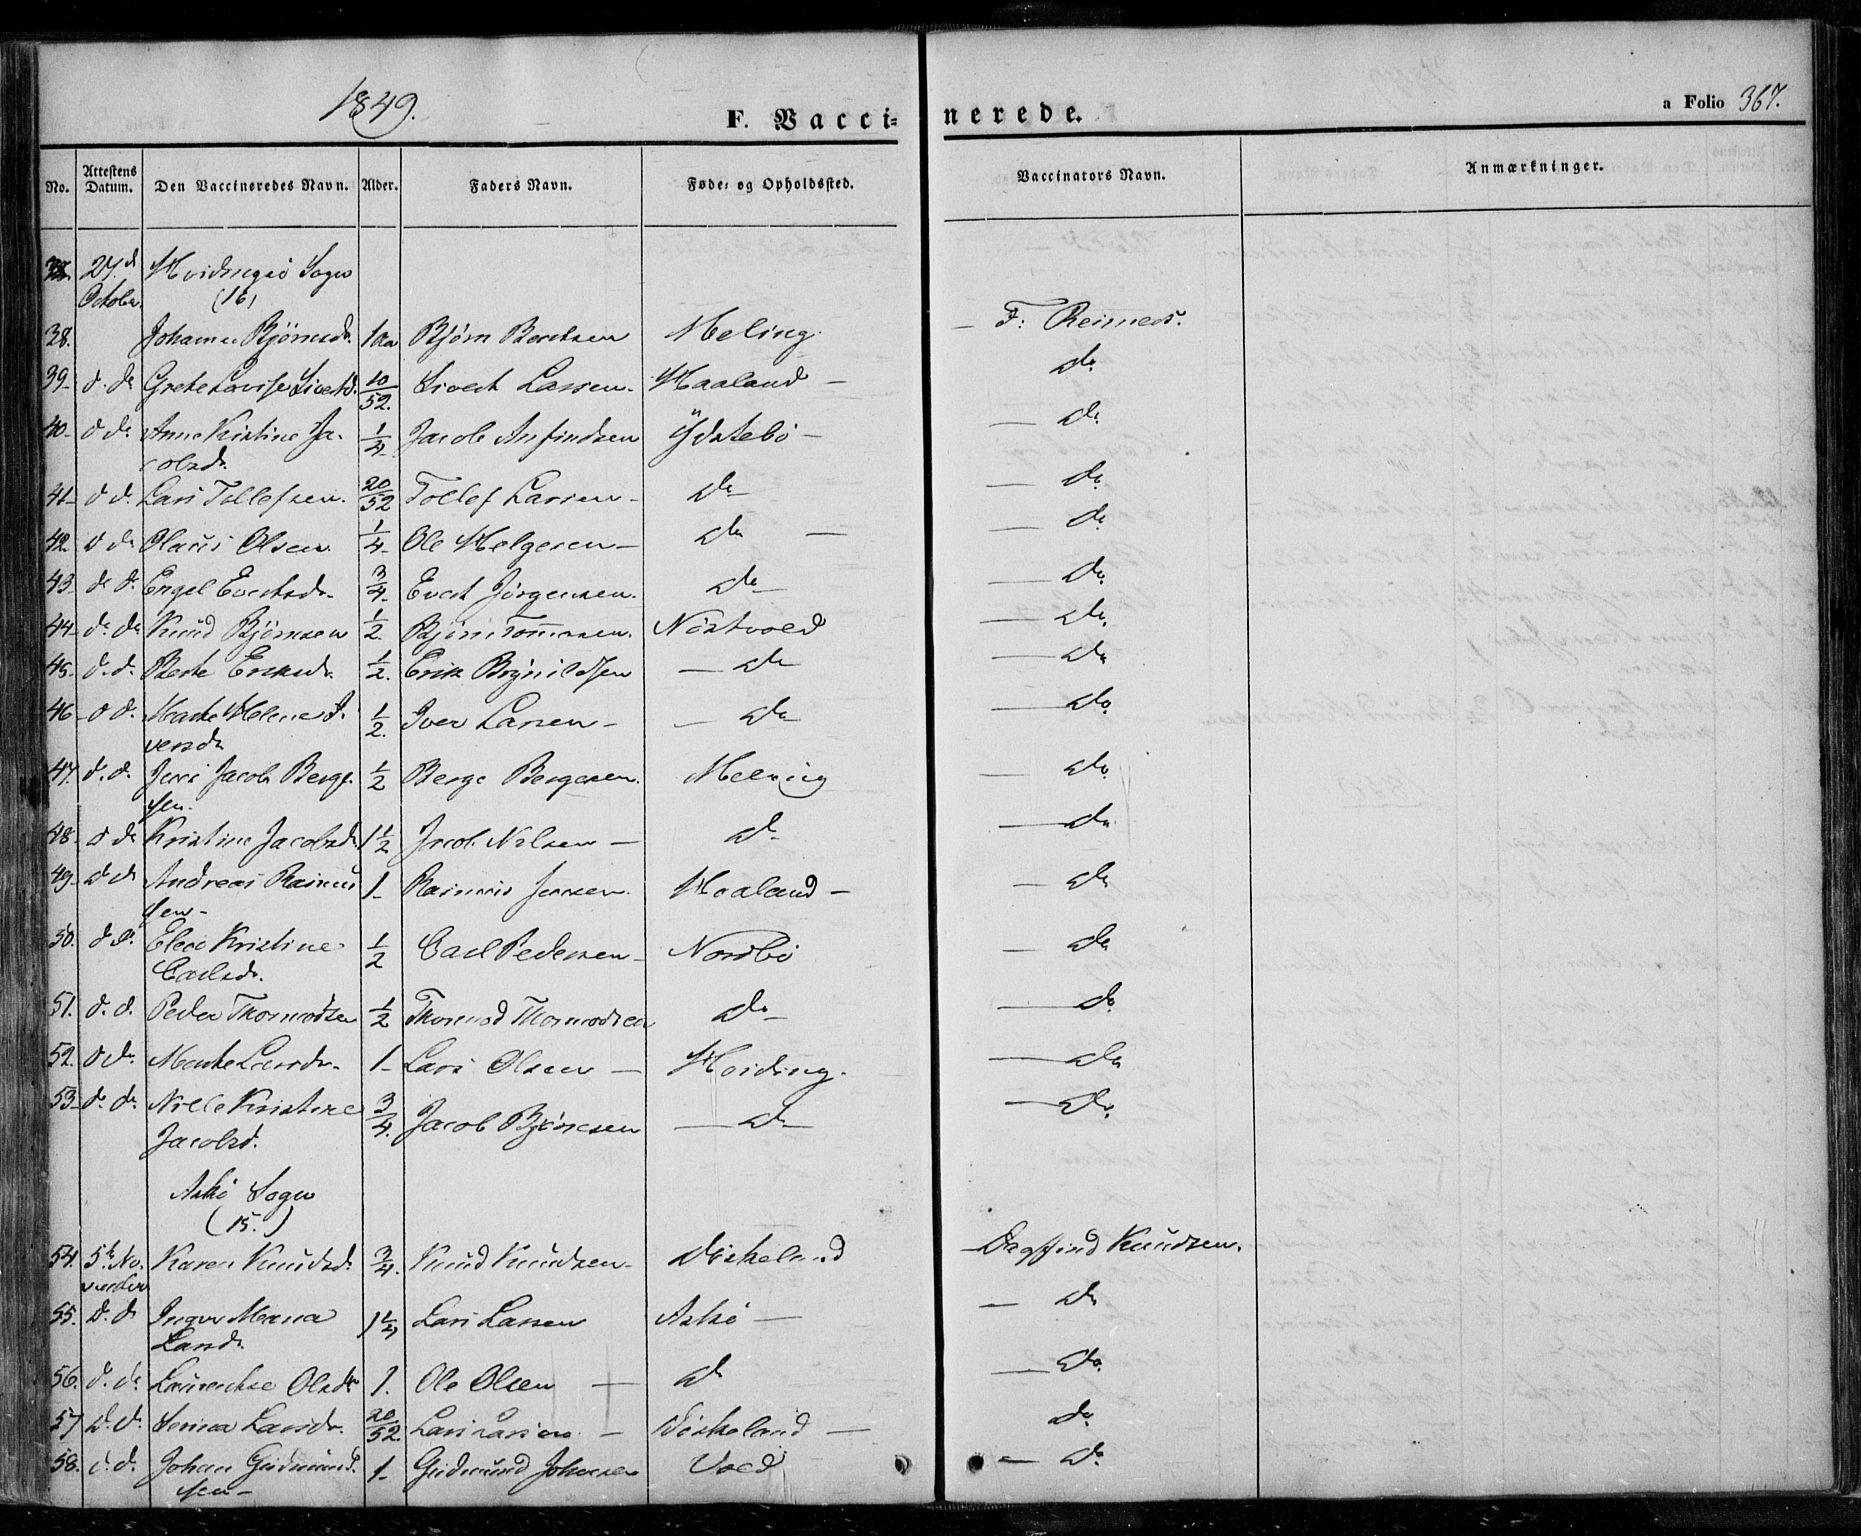 1849.
F. Vaccinerede.
a Folio 367.
No. Attestens Datum. Den Vaccineredes Navn. Alder. Faders Navn. Føde- og Opholdssted. Vaccinators Navn. Anmærkninger.
27d October Hvidingsö Sogn
(16)
38. Johanne Bjørnsdr. 1 Bjørn Berthsen Meling — F: Reimers.
39- d. do Grete Lovise Sivertsd. 10/52. Sivert Larsen. Haaland — do
40- d do Anne Kristine Ja- 1/4 Jacob Anfindsen Ydstebö — — do
cobsdr.
41- d d. Lars Tollefsen. 20/52 Tollef Larsen — do — do
42. d do Olaus Olsen 1/4 Ole Helgesen — do — — do
43- do do Engel Evertsdr. 3/4. Evert Jörgensen. do — do
44- do do Knud Bjørnsen 1/2. Bjørn Tommesen. Nöstvold — do
45- d. d. Berte Eriksdr. 1/2. Erik Brynildsen — do — do
46- d d. Marte Helene I- 1/2. Iver Larsen — — do — do
versdr.
47. d. d. Jens Jacob Berge- 1/2 Berge Bergesen. Meling — do
sen.
48. d do Kristine Jacobsdr. 1 1/2 Jacob Nilsen — do — do
49- d d Andreas Rasmus 1- Rasmus Jensen. Haaland — — do
sen-
50. d d. Elen Kristine 1/2 Carl Pedersen — Nordbö — do
Carlsdr.
51. d. d. Peder Thormodsen 1/2 Thormod Thormodsen do — do
52. d do Marte Larsdr. 1- Lars Olsen — Hviding. — do
53- d. do Nille Kristine 3/4. Jacob Bjørnsen — do — do
Jacobsd.
Askö Sogn
(15.)
54. 5te No- Karen Knudsd. 3/4. Knud Knudsen — Diskeland — Dagfind Knudsen.
vember
55. d. d Inger Maria 1 1/4 Lars Larsen Askö — — do
Larsdr.
56. d. do Laurentse Olsdr 1. Ole Olsen — do — do
57 d. d. Serina Larsdr. 20/52. Lars Larsen — Diskeland — do
58. d. d. Johan Gudmund- 1- Gudmund Johnsen Vold — do
sen-